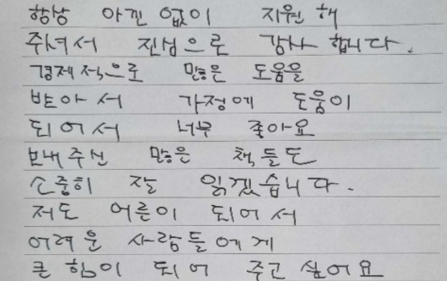 항상 아낌 없이 지원 해
주셔서 진심으로 감사 합니다.
경제적으로 많은 도움을
받아서 가정에 도움이
되어서 너무 좋아요
보내주신 많은 책들도
소중히 잘 읽겠습니다.
저도 어른이 되어서
어려운 사람들에게
큰 힘이 되어 주고 싶어요